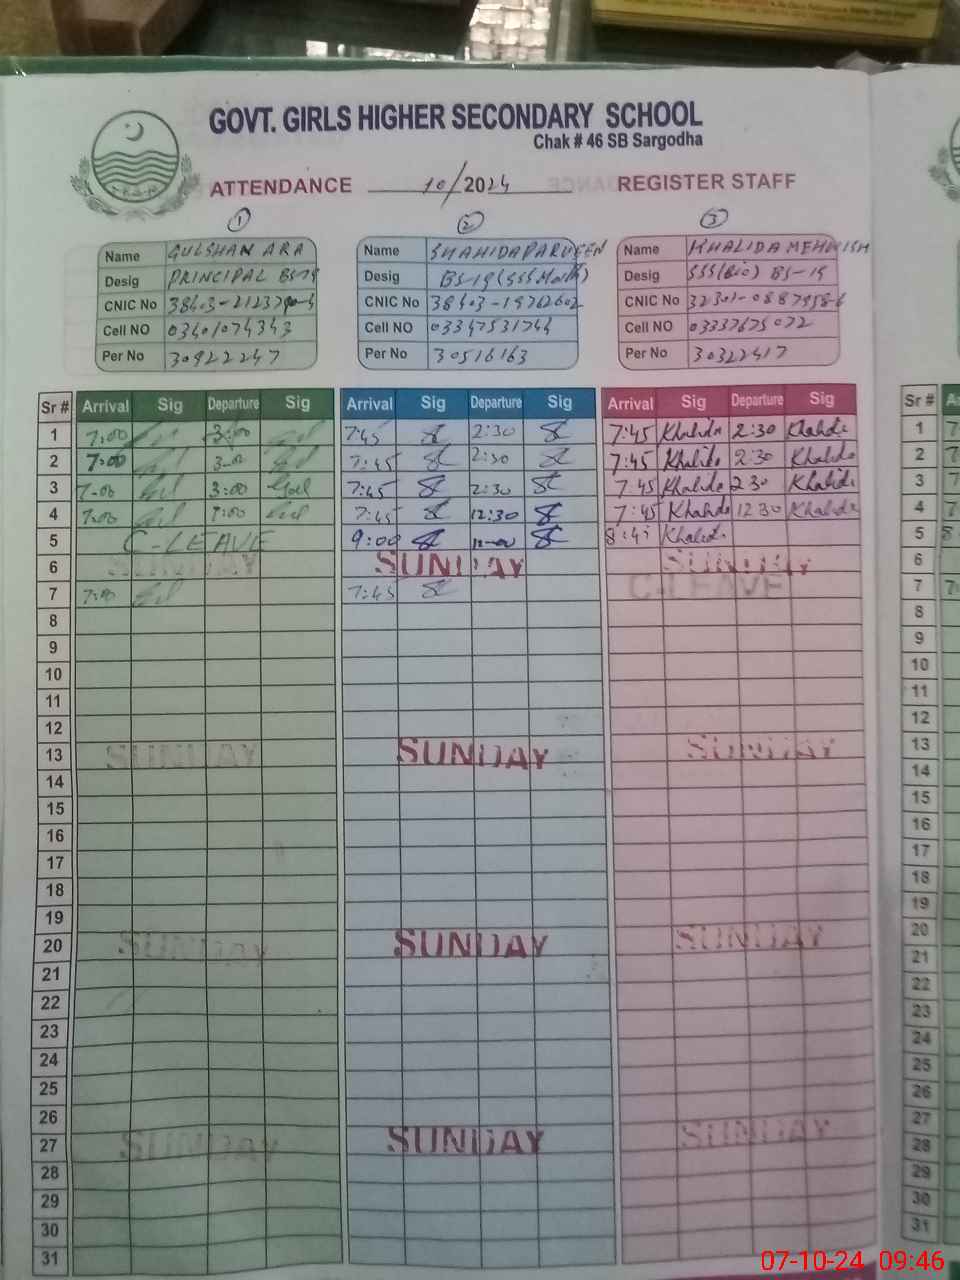 GOVT. GIRLS HIGHER SECONDARY SCHOOL
Chak # 46 SB Sargodha
ATTENDANCE 10/2024 REGISTER STAFF
1 2 3
Name GULSHAN ARA Name SHAHIDA PARVEEN Name KHALIDA MEHWISH
Desig PRINCIPAL BS-19 Desig BS-19 (SSS Math) Desig SSS(Bio) BS-19
CNIC No CNIC No 38403-19762602- CNIC No
Cell NO 03401074343 Cell NO 03347531744 Cell NO 03337675072
Per No 30922247 Per No 30516163 Per No 30322417
Sr # Arrival Sig Departure Sig Arrival Sig Departure Sig Arrival Sig Departure Sig Sr #
1 7:00 3:00 7:45 2:30 7:45 Khalida 2:30 Khalida 1
2 7:00 3-00 7:45 2:30 7:45 Khalida 2:30 Khalida 2
3 7-00 3:00 Gul 7:45 2:30 7:45 Khalida 2 30 Khalida 3
4 7:00 7:45 12:30 7:45 Khalida 12 30 Khalida 4
5 C-LEAVE 9:00 8:45 Khalida 5
6 SUNDAY SUNDAY SUNDAY 6
7 7:00 7:45 C-LEAVE 7
8 8
9 9
10 10
11 11
12 12
13 SUNDAY SUNDAY SUNDAY 13
14 14
15 15
16 16
17 17
18 18
19 19
20 SUNDAY SUNDAY SUNDAY 20
21 21
22 22
23 23
24 24
25 25
26 26
27 SUNDAY SUNDAY SUNDAY 27
28 28
29 29
30 30
31 31
07-10-24 09:46